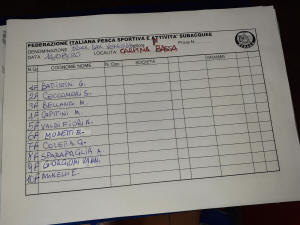 FEDERAZIONE ITALIANA PESCA SPORTIVA E ATTIVITA' SUBACQUEE
DENOMINAZIONE Prova N.
DATA LOCALITÀ CARPINA BASSA
N.Gr COGNOME NOME N. Con. SOCIETÀ GRAMMI
1F BATTISTIN G.
2F CECCOMORI S.
3F BELLANIS M.
4F CAPITINI M.
5F VALDIFIORI A.
6F MORETTI E.
7F COLETTA G.
8F SPARAPAGLIA A.
9F GIORGIONI
10F MINELLI E.